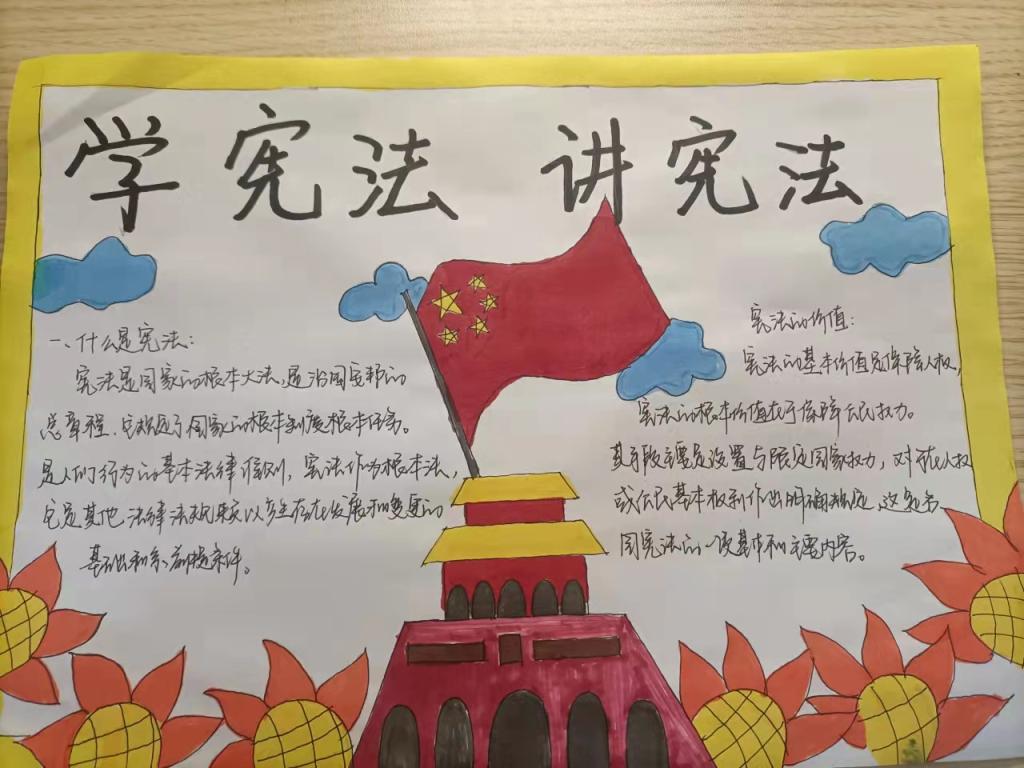 学宪法 讲宪法
一、什么是宪法：
宪法是国家的根本大法,是治国安邦的
总章程、它规定了国家的根本制度根本任务。
是人们行为的基本法律准则，宪法作为根本法，
它是其他法律法规赖以产生存在发展和变更的
基础和前提条件。
宪法的价值：
宪法的基本价值是保障人权，
宪法的根本价值在于保障公民权力。
其手段主要是设置与限定国家权力，对
或公民基本权利作出明确规定、这是
国宪法的一项基本和主要内容。